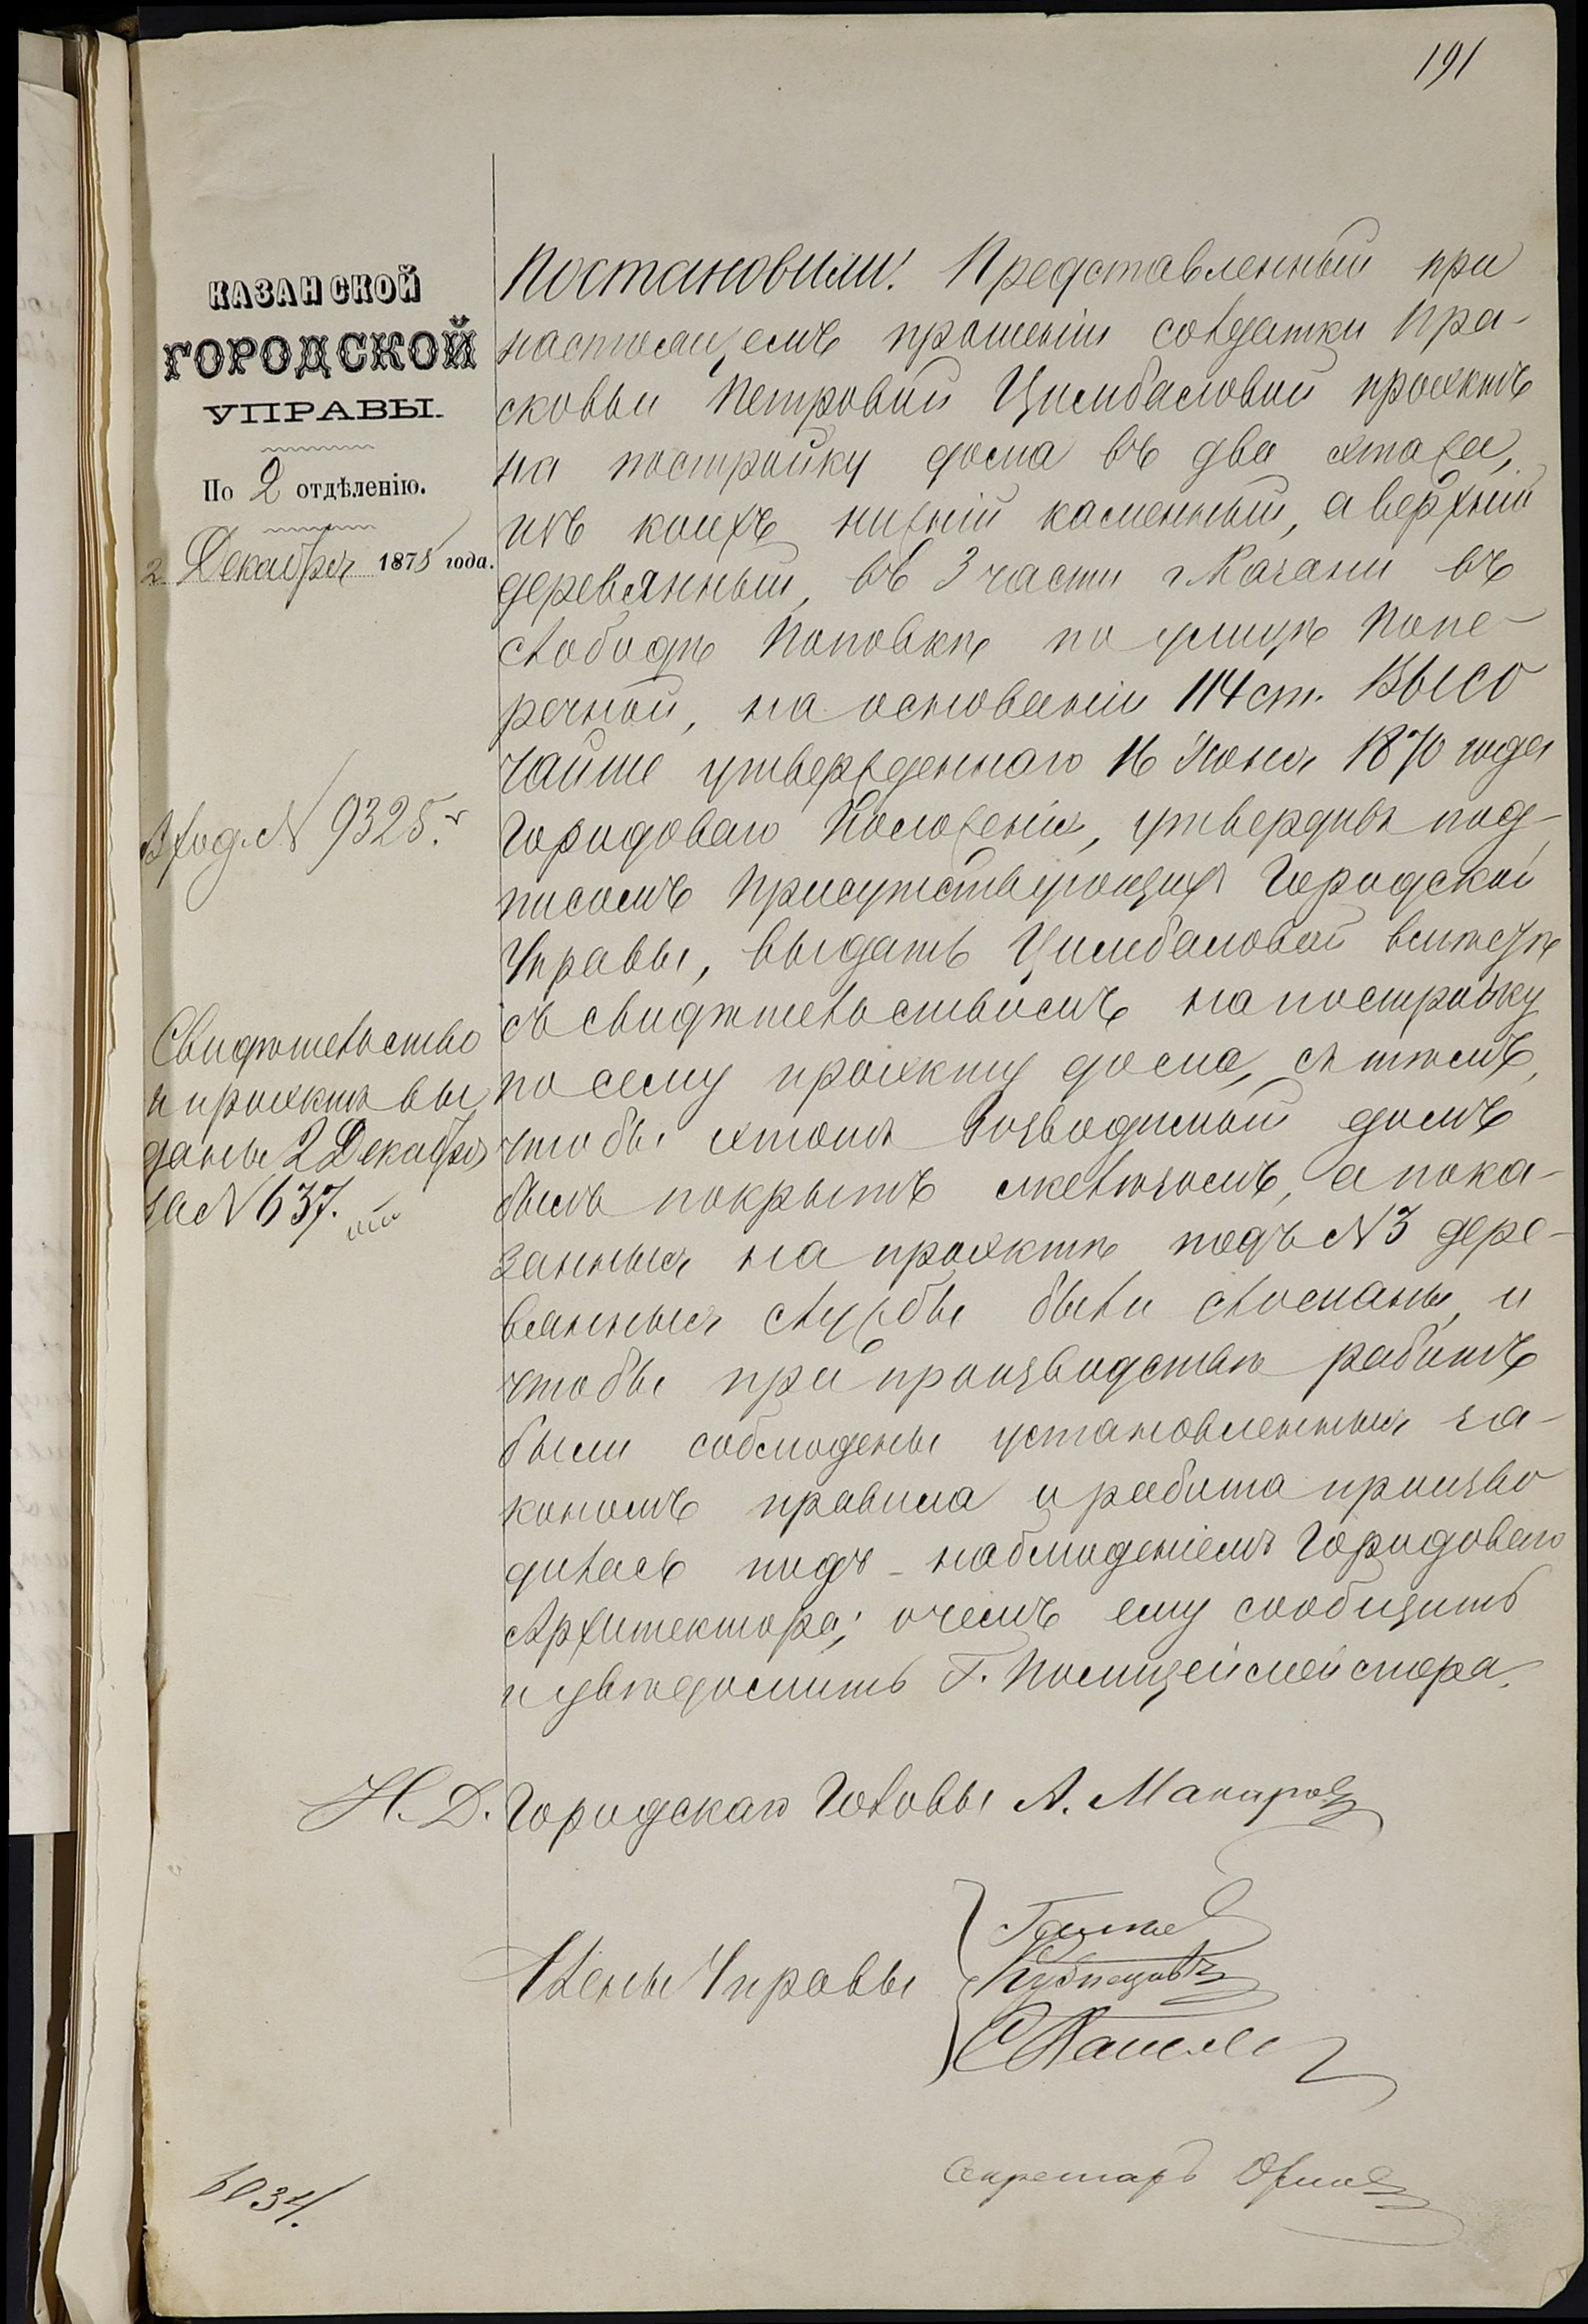 191
КАЗАНСКОЙ
ГОРОДСКОЙ
УПРАВЫ.
По 2 отдѣленію.
2 Декабря 1875 года.
Вход. № 9325.
Свидѣтельство
и проэктъ вы
даны 2 Декабря
за № 637.
Постановили: Представленный при
настоящемъ прошеніи солдатки Пра-
сковьи Петровой Цимбаловой проэктъ
на постройку дома въ два этажа,
изъ коихъ нижній каменный, а верхній
деревянный, въ 3 части г. Казани въ
слободѣ Поповкѣ по улицѣ Попе-
речной, на основаніи 114 ст. Высо
чайше утвержденнаго 16 Іюня 1870 года
Городоваго Положенія, утвердивъ под-
писомъ Присутствующихъ Городской
Управы, выдать Цимбаловой вмѣстѣ
съ свидѣтельствомъ на постройку
по сему проэкту дома, съ тѣмъ,
чтобы этотъ возводимый домъ
былъ покрытъ желѣзомъ, а пока-
занныя на проэктѣ подъ № 3 дере-
вянныя службы были сломаны, и
чтобы при производствѣ работъ
были соблюдены установленныя за-
кономъ правила и работа произво
дилась подъ наблюденіемъ Городоваго
Архитектора; о чемъ ему сообщить
и увѣдомить Г. Полицеймейстера.
И. Д. Городскаго Головы А. Макаровъ
Члены Управы
Кузнецовъ
Секретарь
6034.